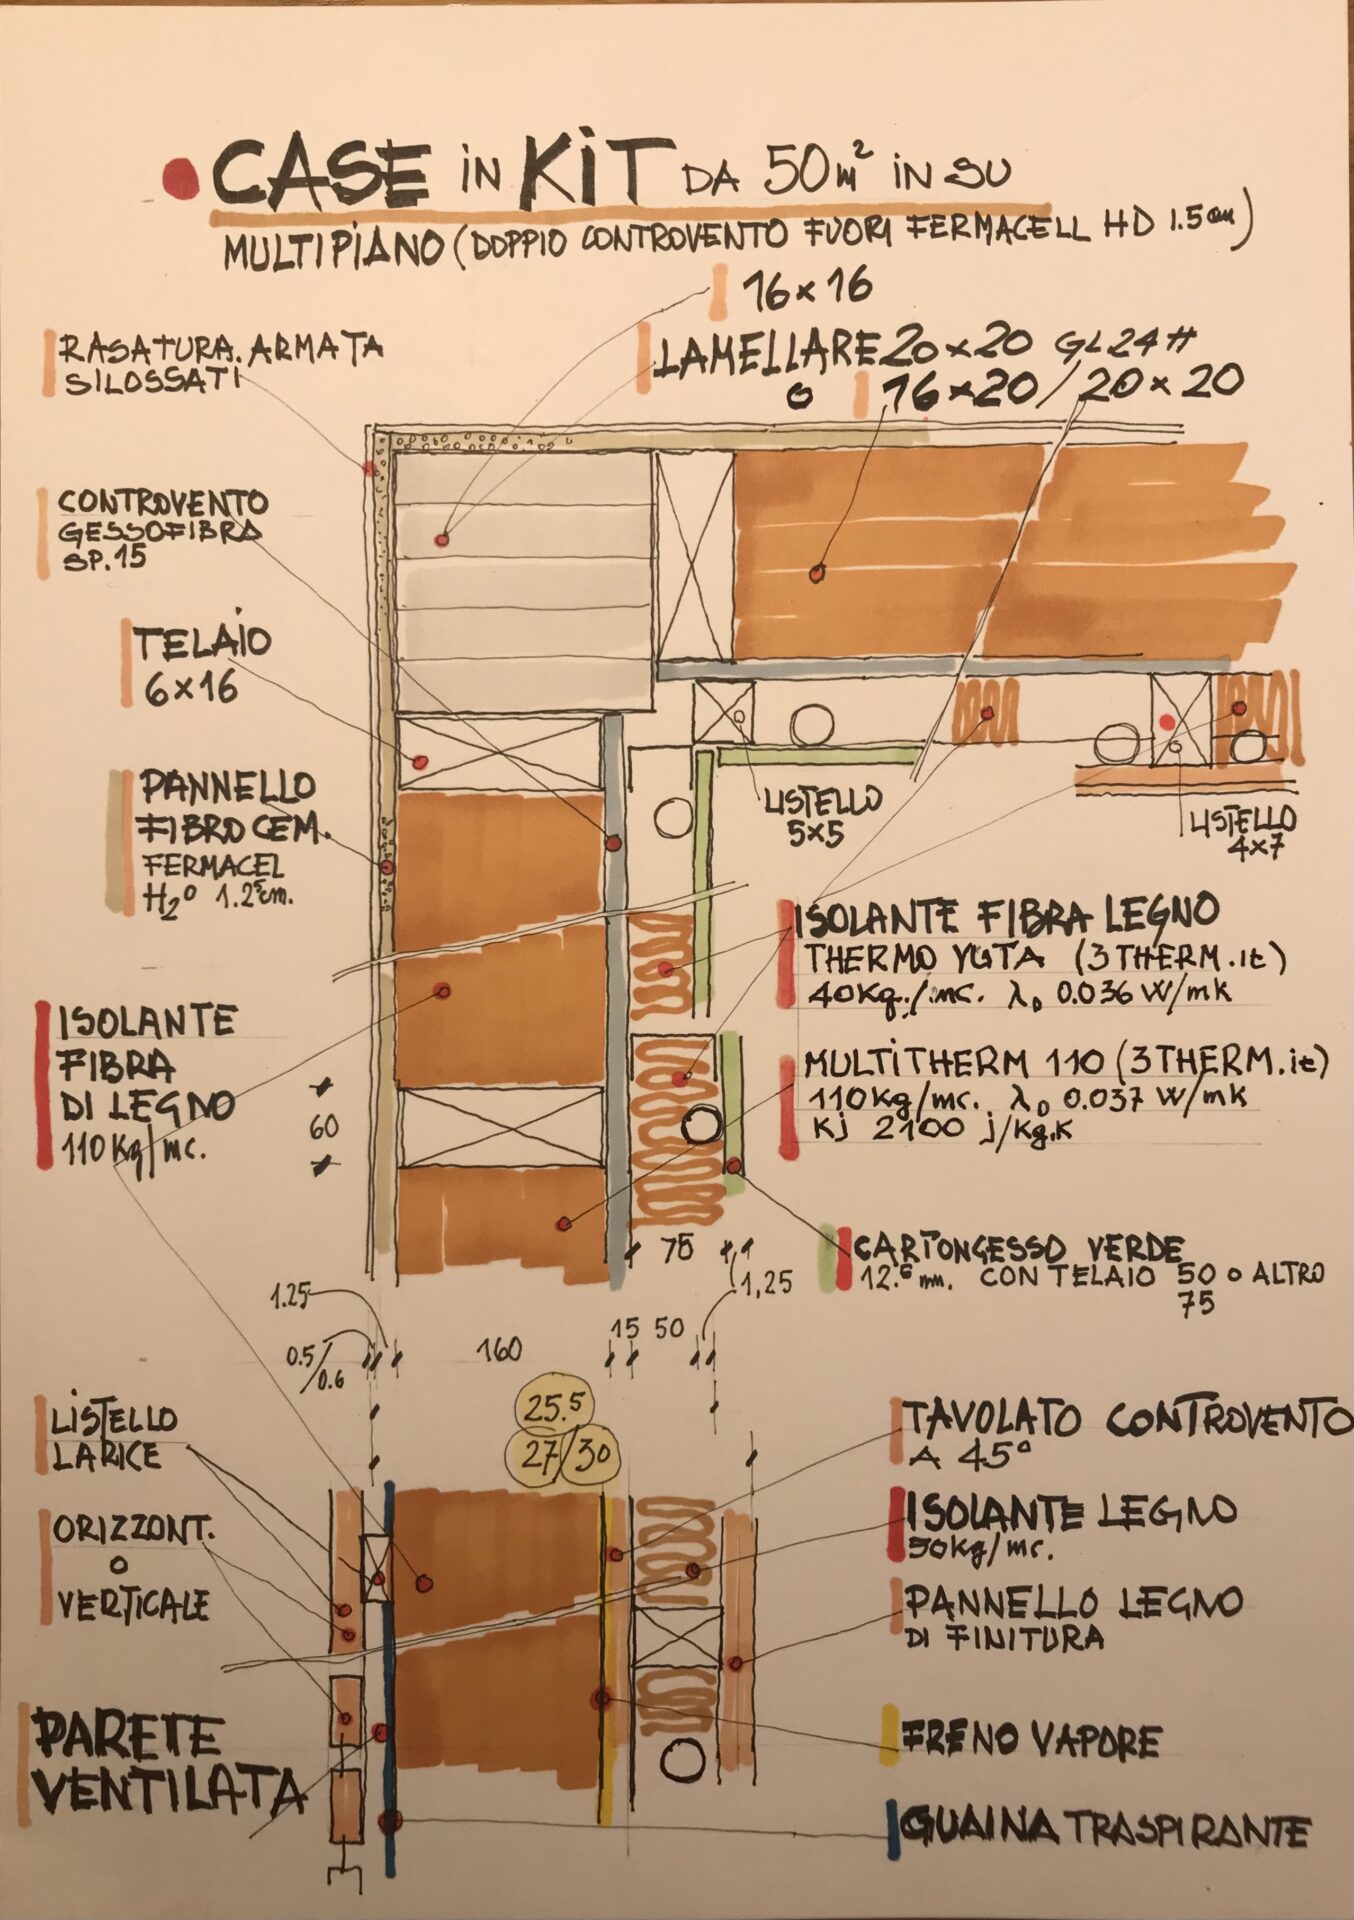 CASE IN KIT DA 50m² IN SU
MULTIPIANO (DOPPIO CONTROVENTO FUORI FERMACELL HD 1.5 cm)
16×16
LAMELLARE 20×20 GL24H
O 16×20/20×20
RASATURA ARMATA
SILOSSATI
CONTROVENTO
GESSOFIBRA
SP. 15
TELAIO
6×16
PANNELLO
FIBROCEM.
FERMACEL
H₂O 1.25cm.
LISTELLO
5×5
LISTELLO
4×7
ISOLANTE FIBRA LEGNO
THERMO YUTA (3THERM.it)
40Kg./mc. λD 0.036 W/mk
ISOLANTE
FIBRA
DI LEGNO
110Kg/mc.
60
MULTITHERM 110 (3THERM.it)
110Kg/mc. λD 0.037 W/mk
Kj 2100 j/Kg.K
CARTONGESSO VERDE
12.5 mm. CON TELAIO 50 O ALTRO
75
75
1,25
1.25
0.5/0.6
160
15 50
25.5
27/30
LISTELLO
LARICE
ORIZZONT.
O
VERTICALE
PARETE
VENTILATA
TAVOLATO CONTROVENTO
A 45°
ISOLANTE LEGNO
50Kg/mc.
PANNELLO LEGNO
DI FINITURA
FRENO VAPORE
GUAINA TRASPIRANTE